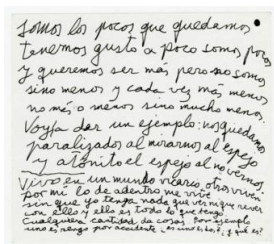 somos los pocos que quedamos
tenemos gusto a poco somos pocos
y queremos ser más pero no somos
sino menos y cada vez más menos
no más o menos sino mucho menos
Voy a dar un ejemplo: nos quedamos
paralizados al mirarnos al espejo
y atónito el espejo al no vernos
Vivo en un mundo vicario, otros viven
por mí lo de adentro me vive
sin que yo tenga nada que ver ni que rever
con ello y ello es todo lo que tengo
cualquier cantidad de cosas. Por ejemplo
uno es rengo por accidente, es uno